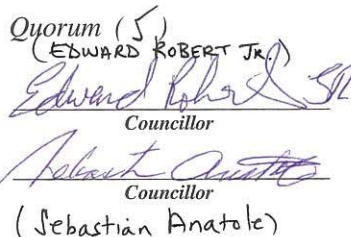 Quorum (5)
(EDWARD ROBERT JR.)
Edward Robert JR
Councillor
Sebastian Anatole
Councillor
(Sebastian Anatole)